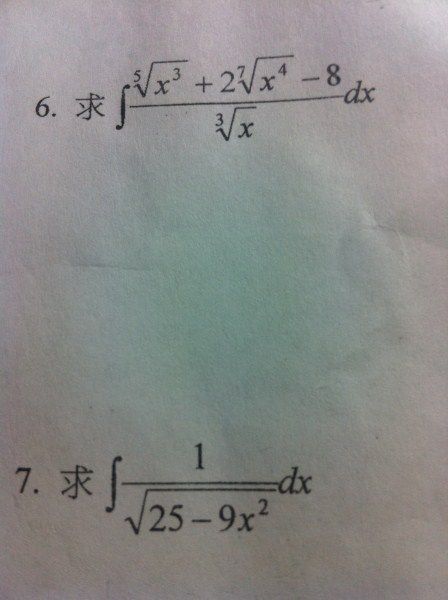 6. 求 ∫ (⁵√x³ + 2⁷√x⁴ − 8) / ³√x dx
7. 求 ∫ 1 / √(25 − 9x²) dx